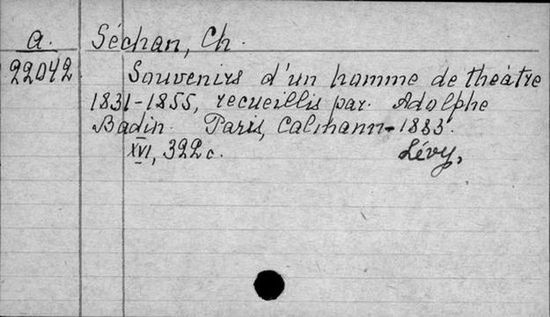 a. Séchan, Ch.
22042 Souvenirs d'un homme de théâtre
1831-1855, recueillis par Adolphe
Badin. Paris, Calmann-1883.
XVI, 322 c. Lévy,